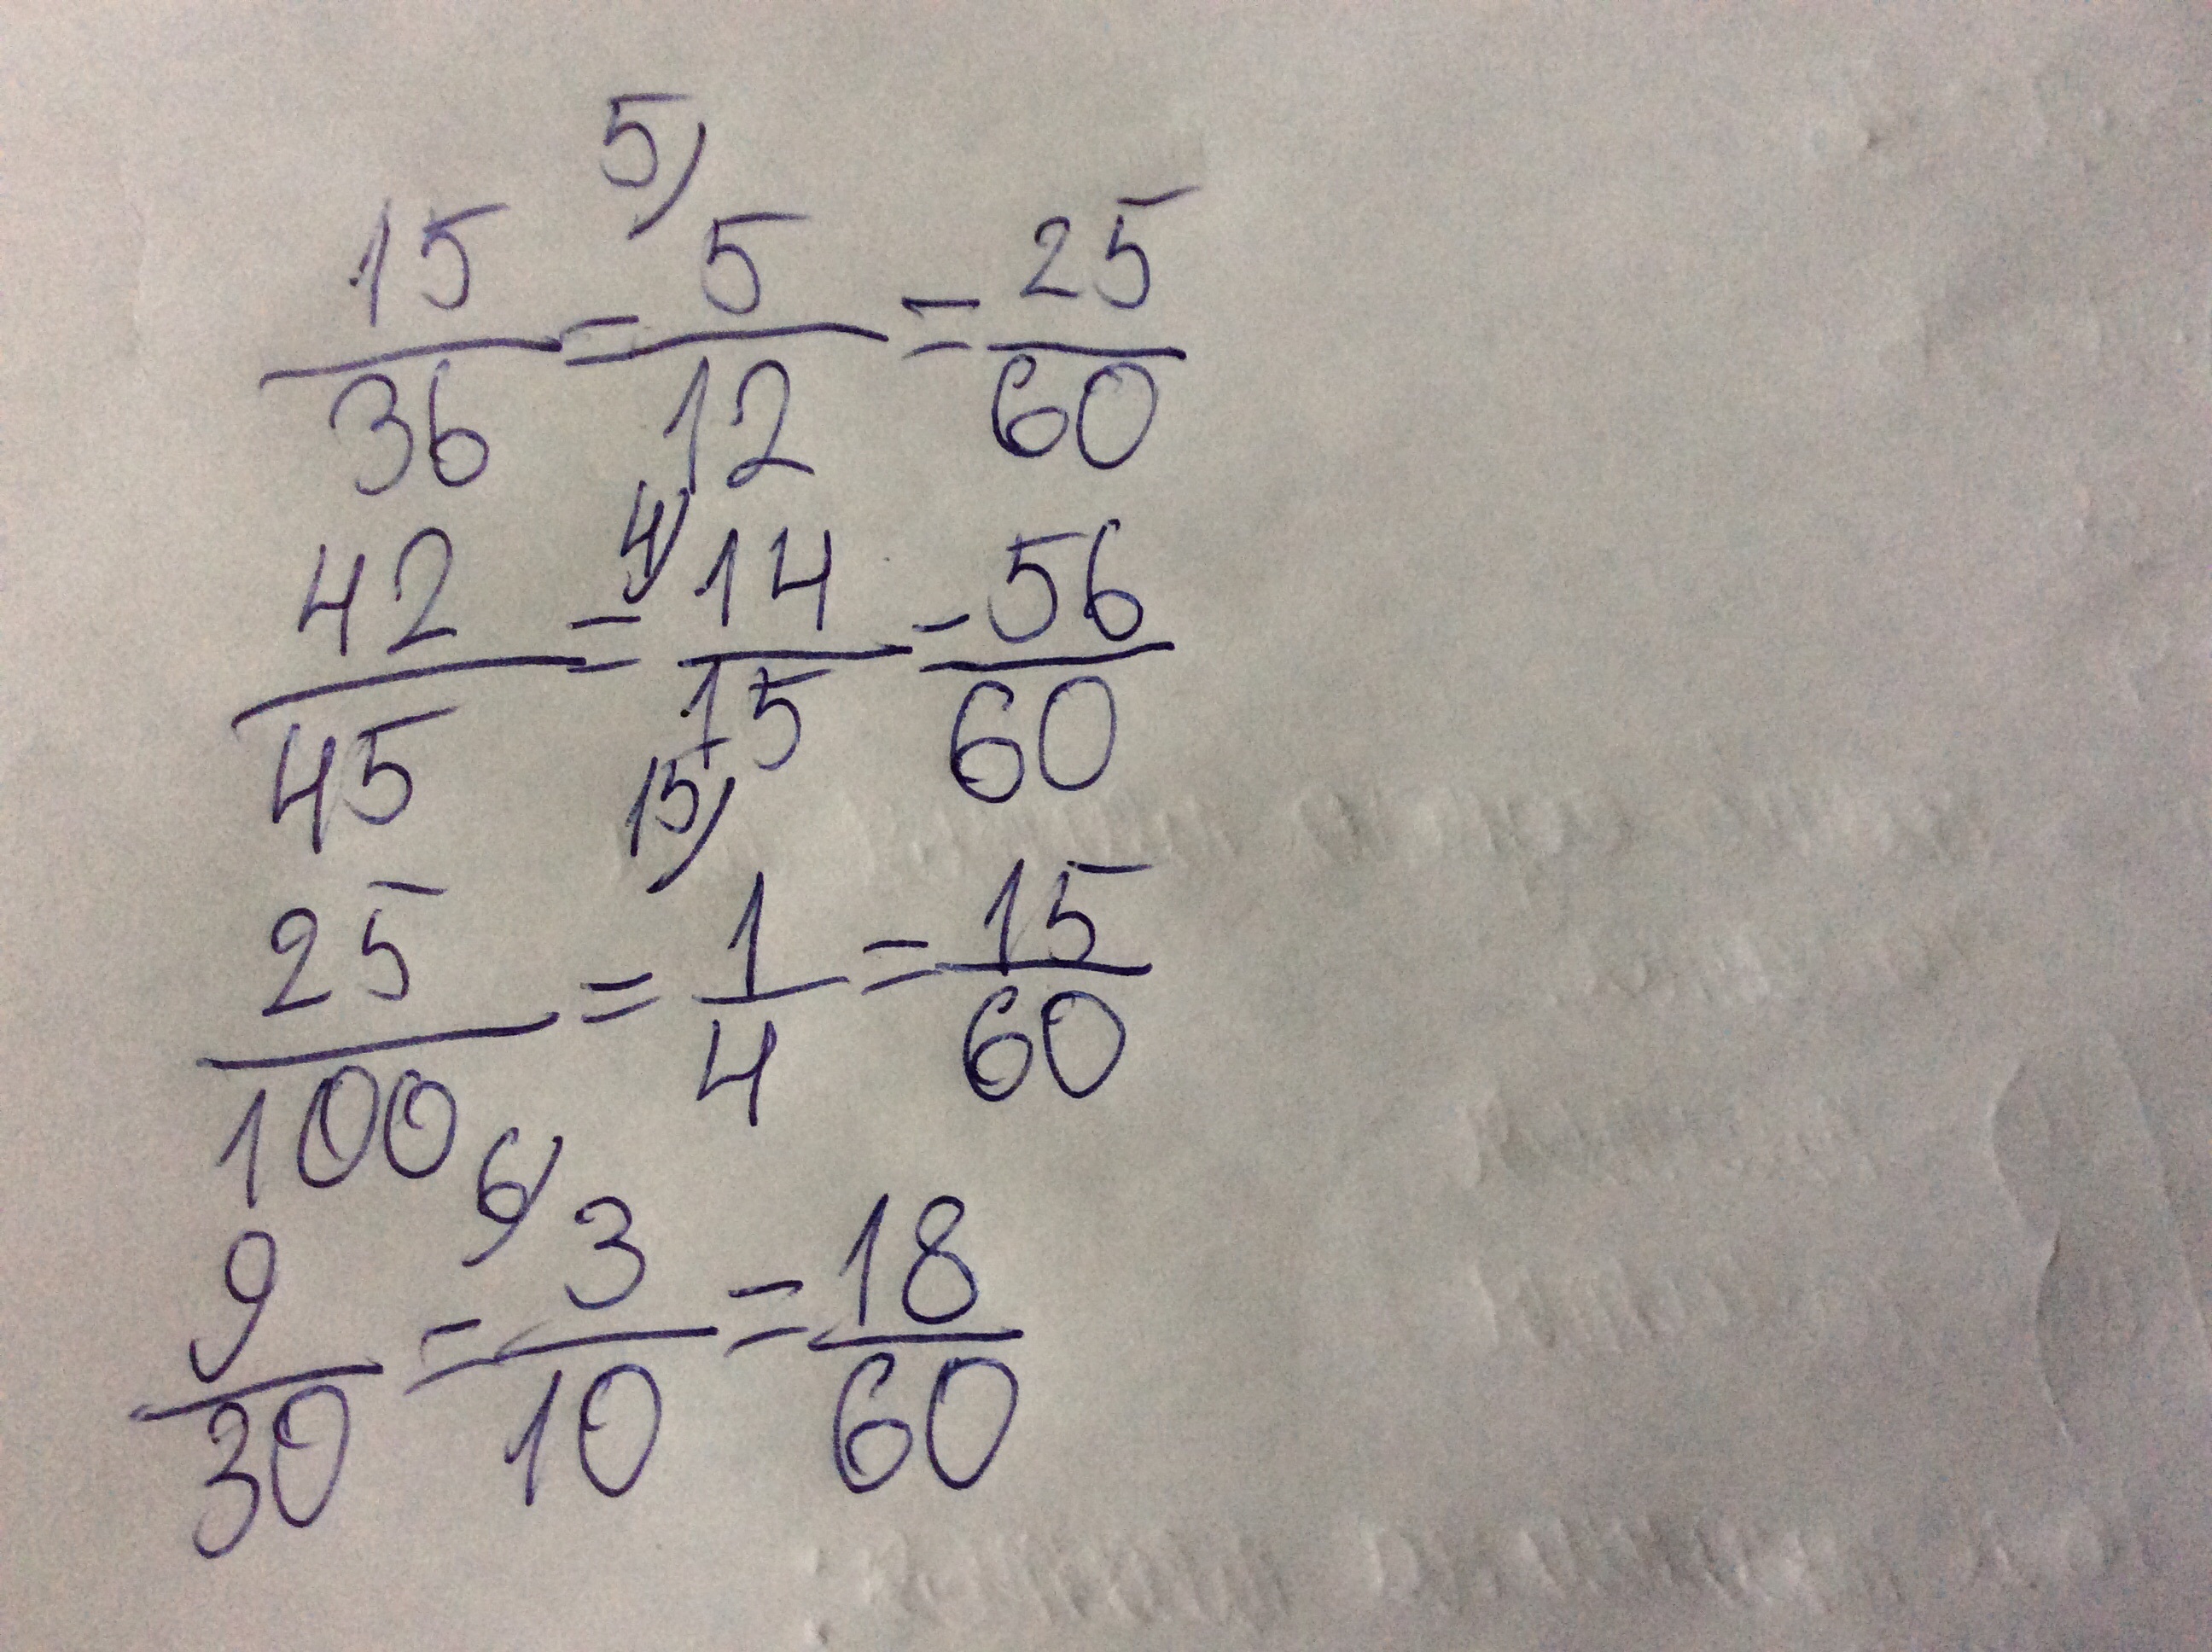 15/36 = 5) 5/12 = 25/60
42/45 = 4) 14/15 = 56/60
25/100 = 15) 1/4 = 15/60
9/30 = 6) 3/10 = 18/60